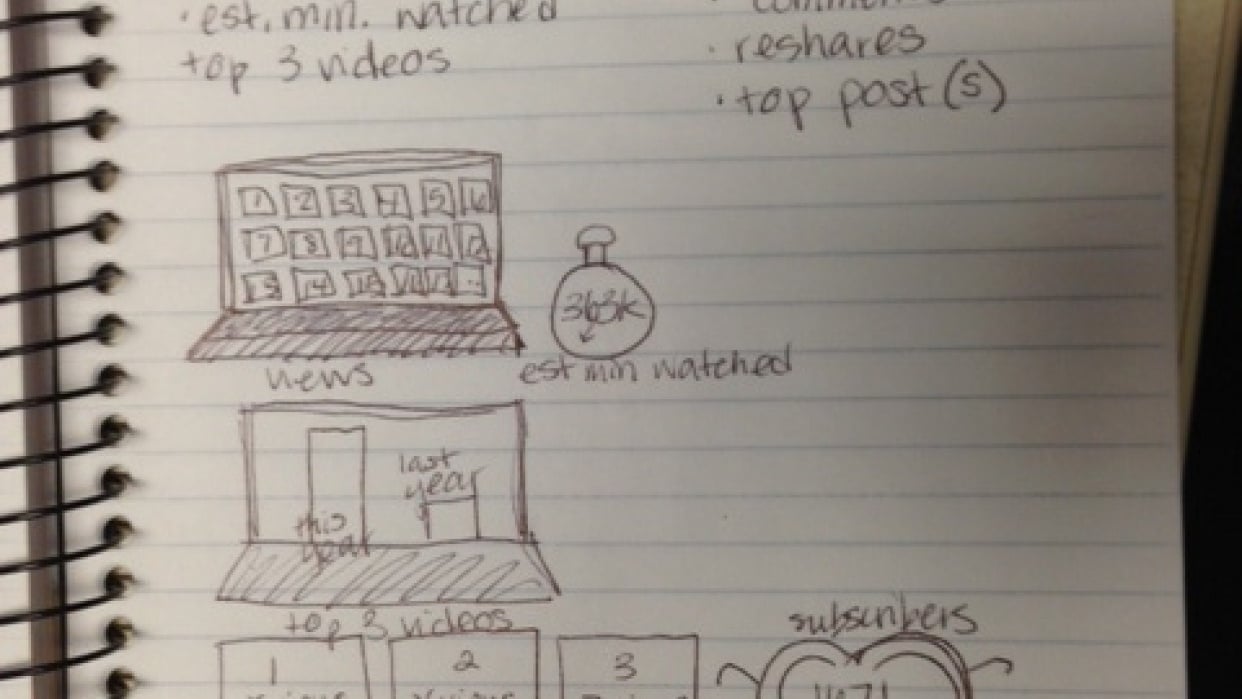 · est. min. watched
top 3 videos
· reshares
· top post(s)
1 2 3 4 5 6
7 8 9 10 11 12
13 14 15 16 17 ..
363k
news
est min watched
last
year
this
year
top 3 videos
subscribers
1 2 3